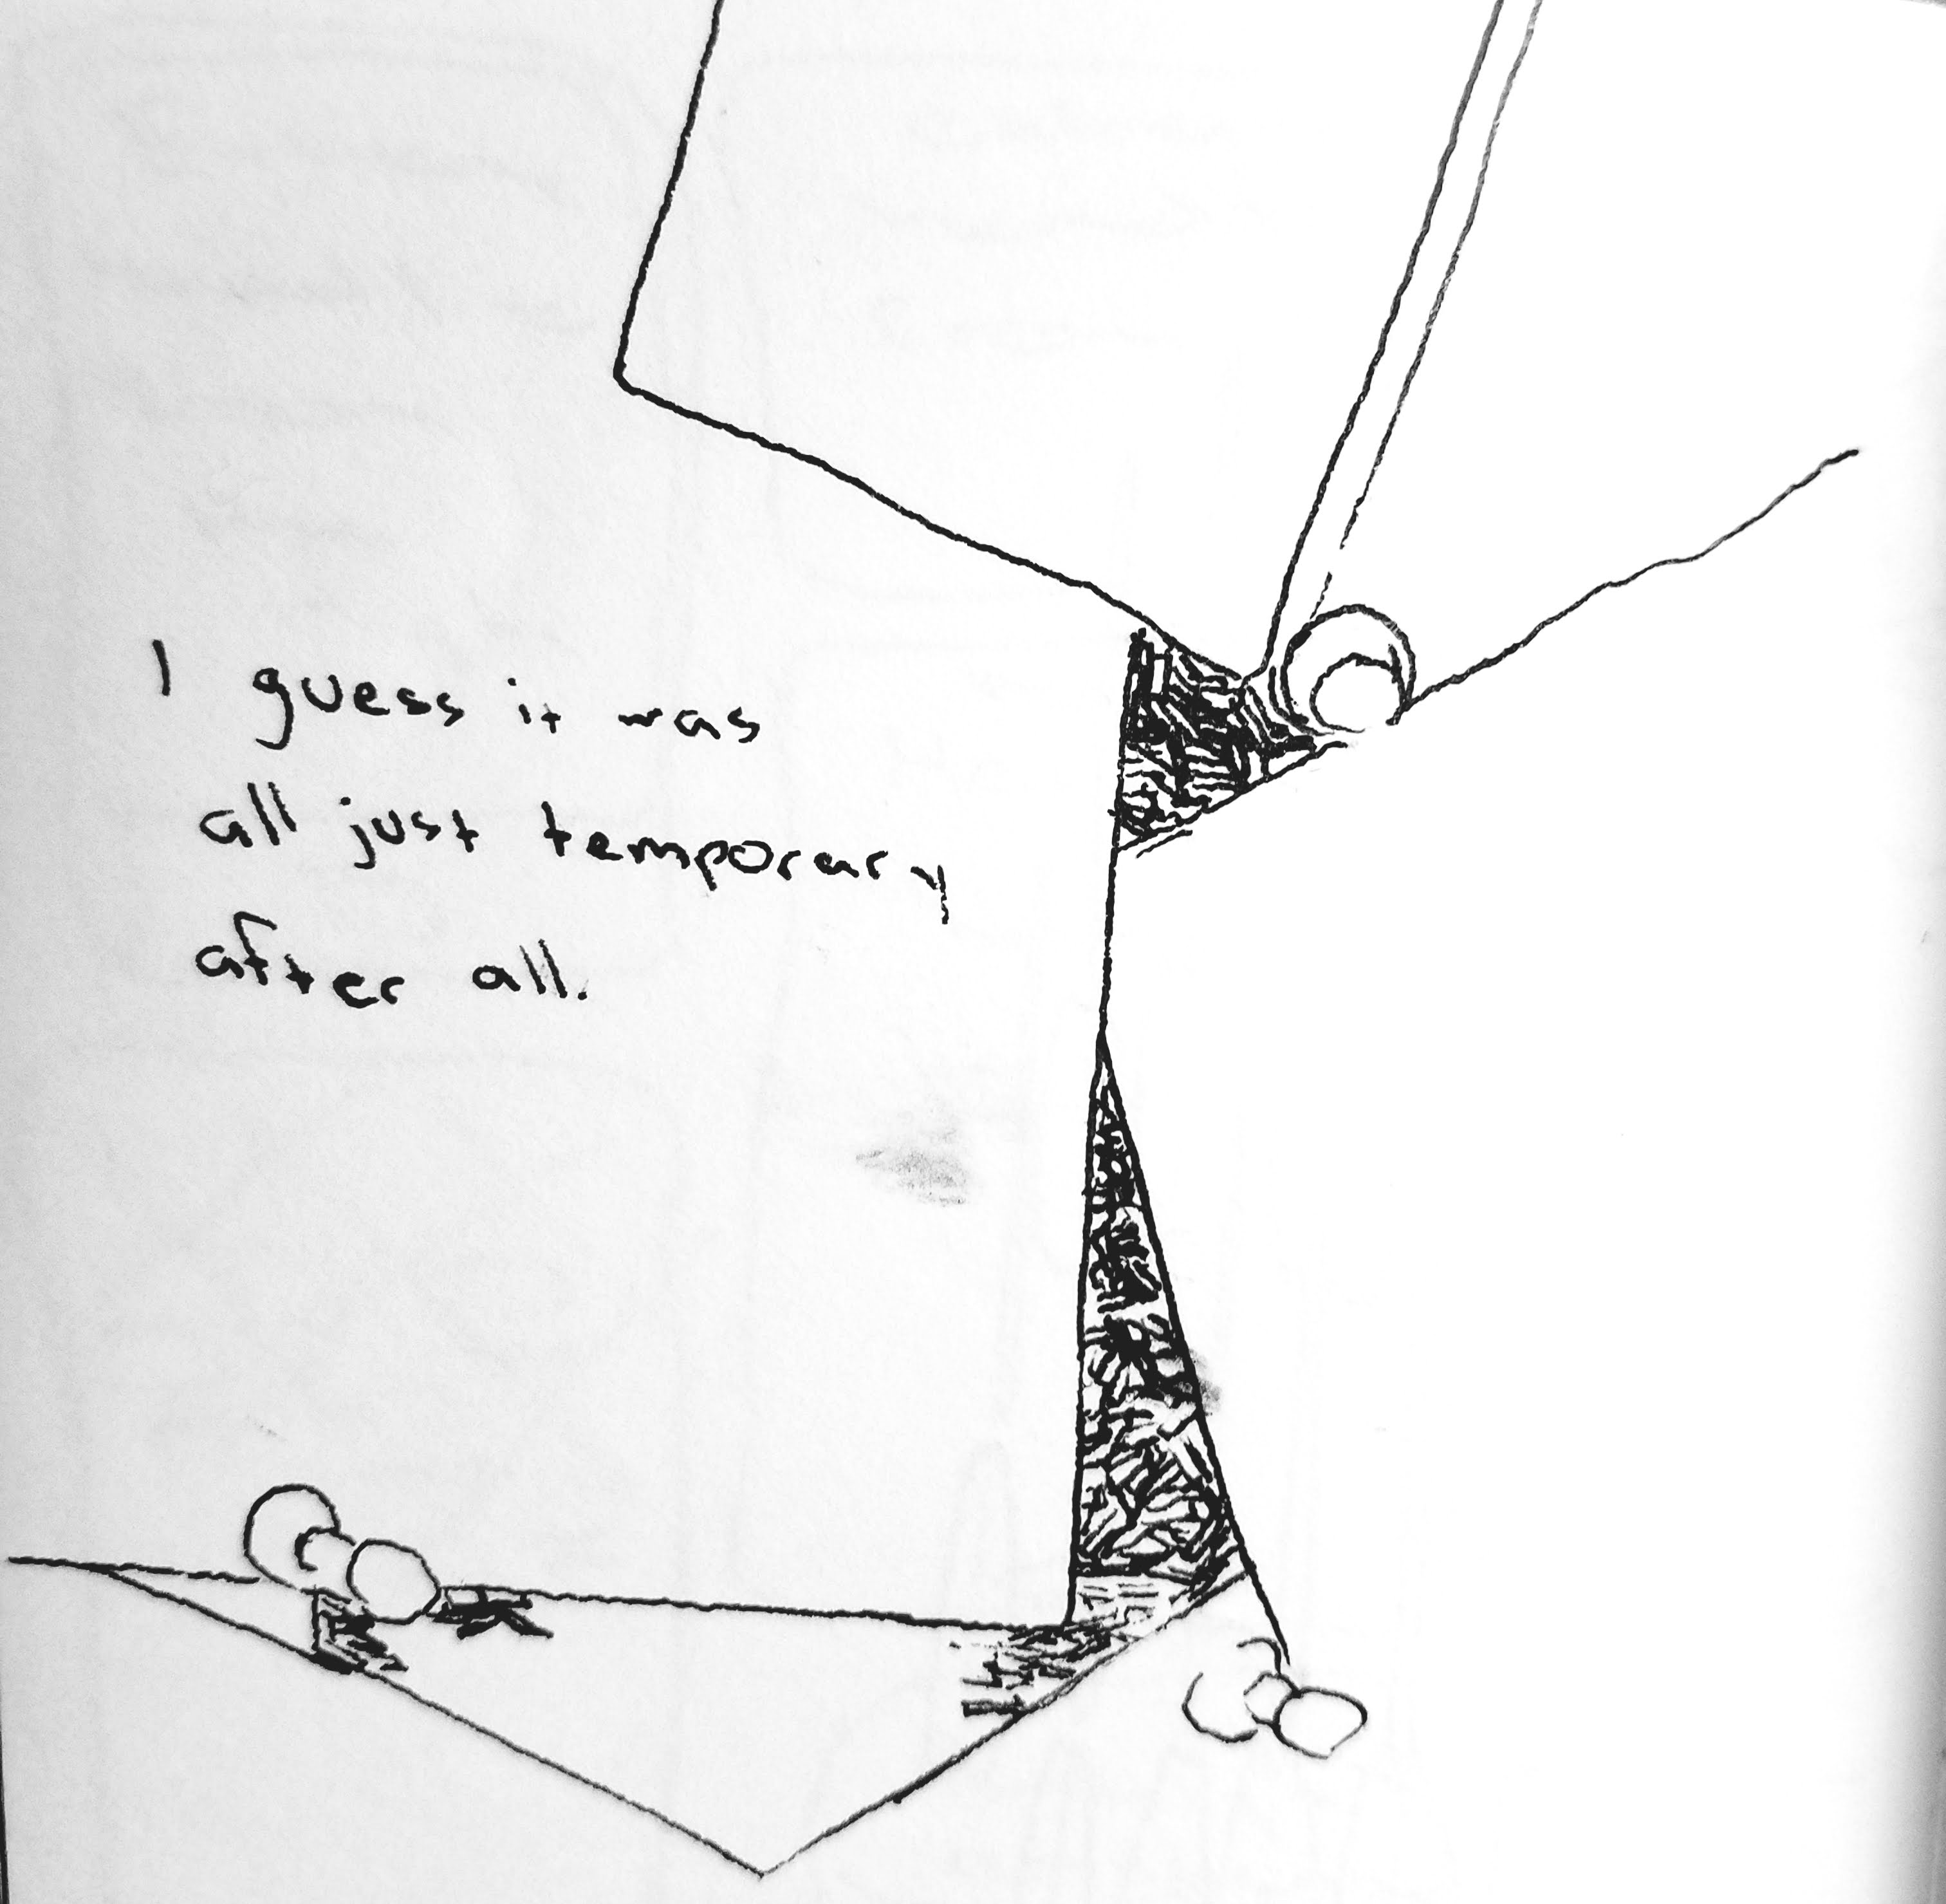 I guess it was
all just temporary
after all.